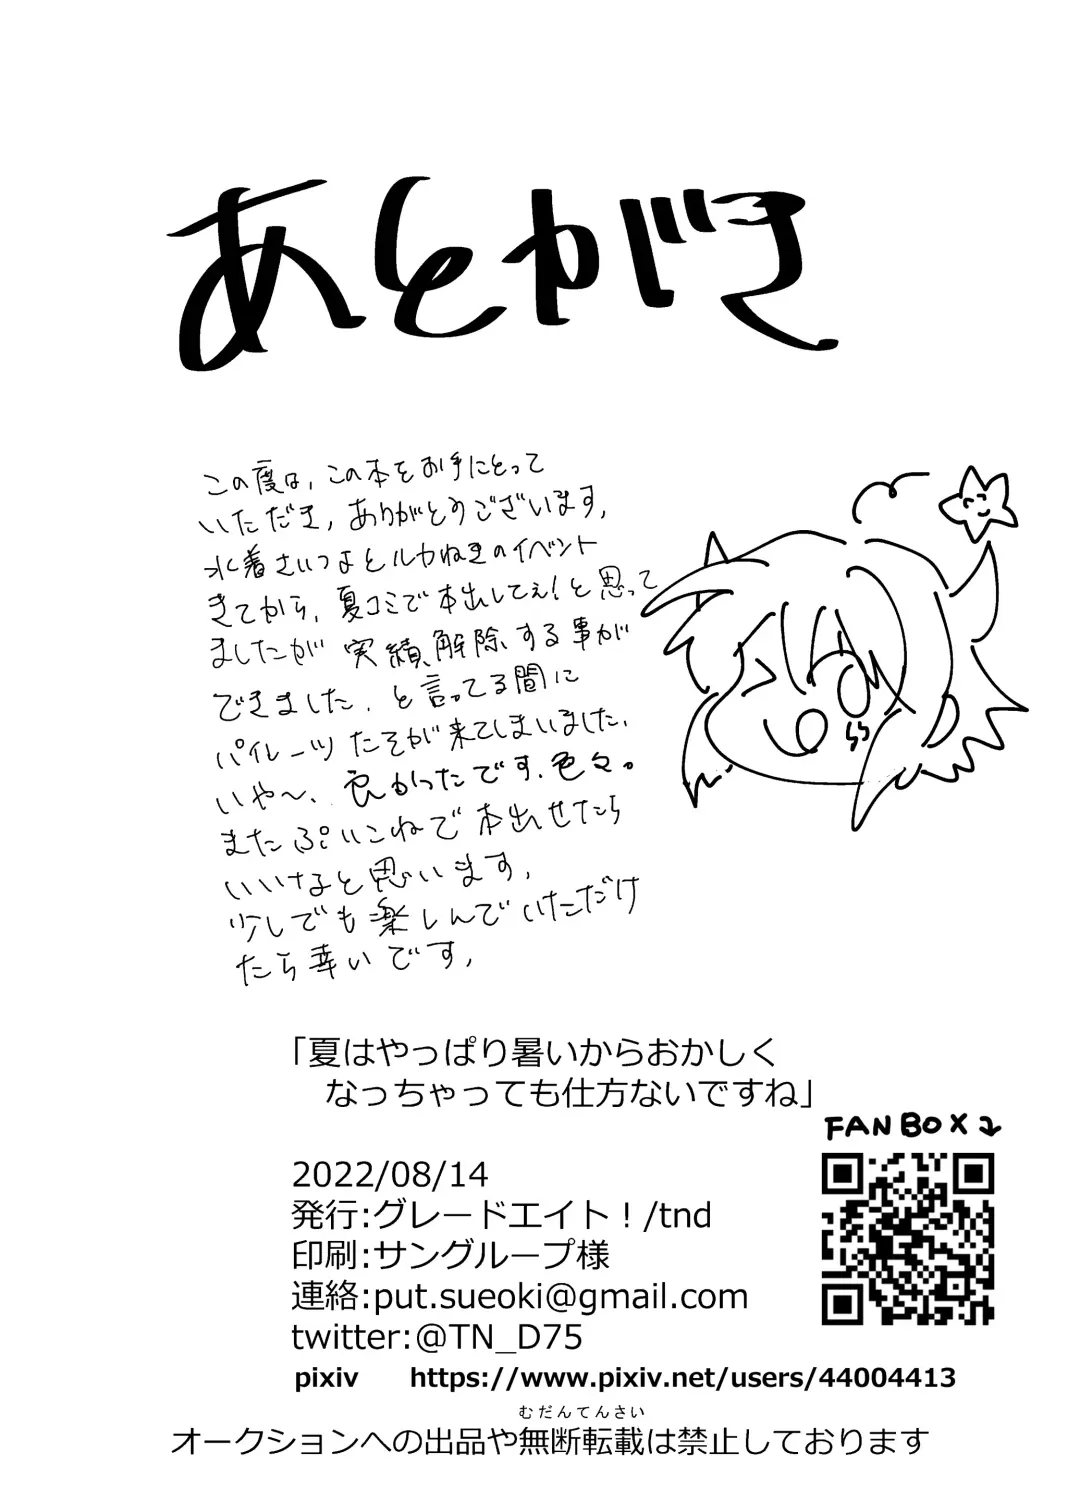 あとがき
この度は、この本をお手にとって
いただき、ありがとうございます、
水着さいつよとルカねきのイベント
きてから、夏コミで本出してぇ!と思って
ましたが 実績解除する事が
できました、と言ってる間に
パイレーツ たそが来てしまいました、
いや〜、良かったです、色々。
またぷいこねで本出せたら
いいなと思います、
少しでも楽しんでいただけ
たら幸いです、
「夏はやっぱり暑いからおかしく
なっちゃっても仕方ないですね」
FANBOX
2022/08/14
発行:グレードエイト!/tnd
印刷:サングループ様
連絡:put.sueoki@gmail.com
twitter:@TN_D75
pixiv https://www.pixiv.net/users/44004413
むだんてんさい
オークションへの出品や無断転載は禁止しております